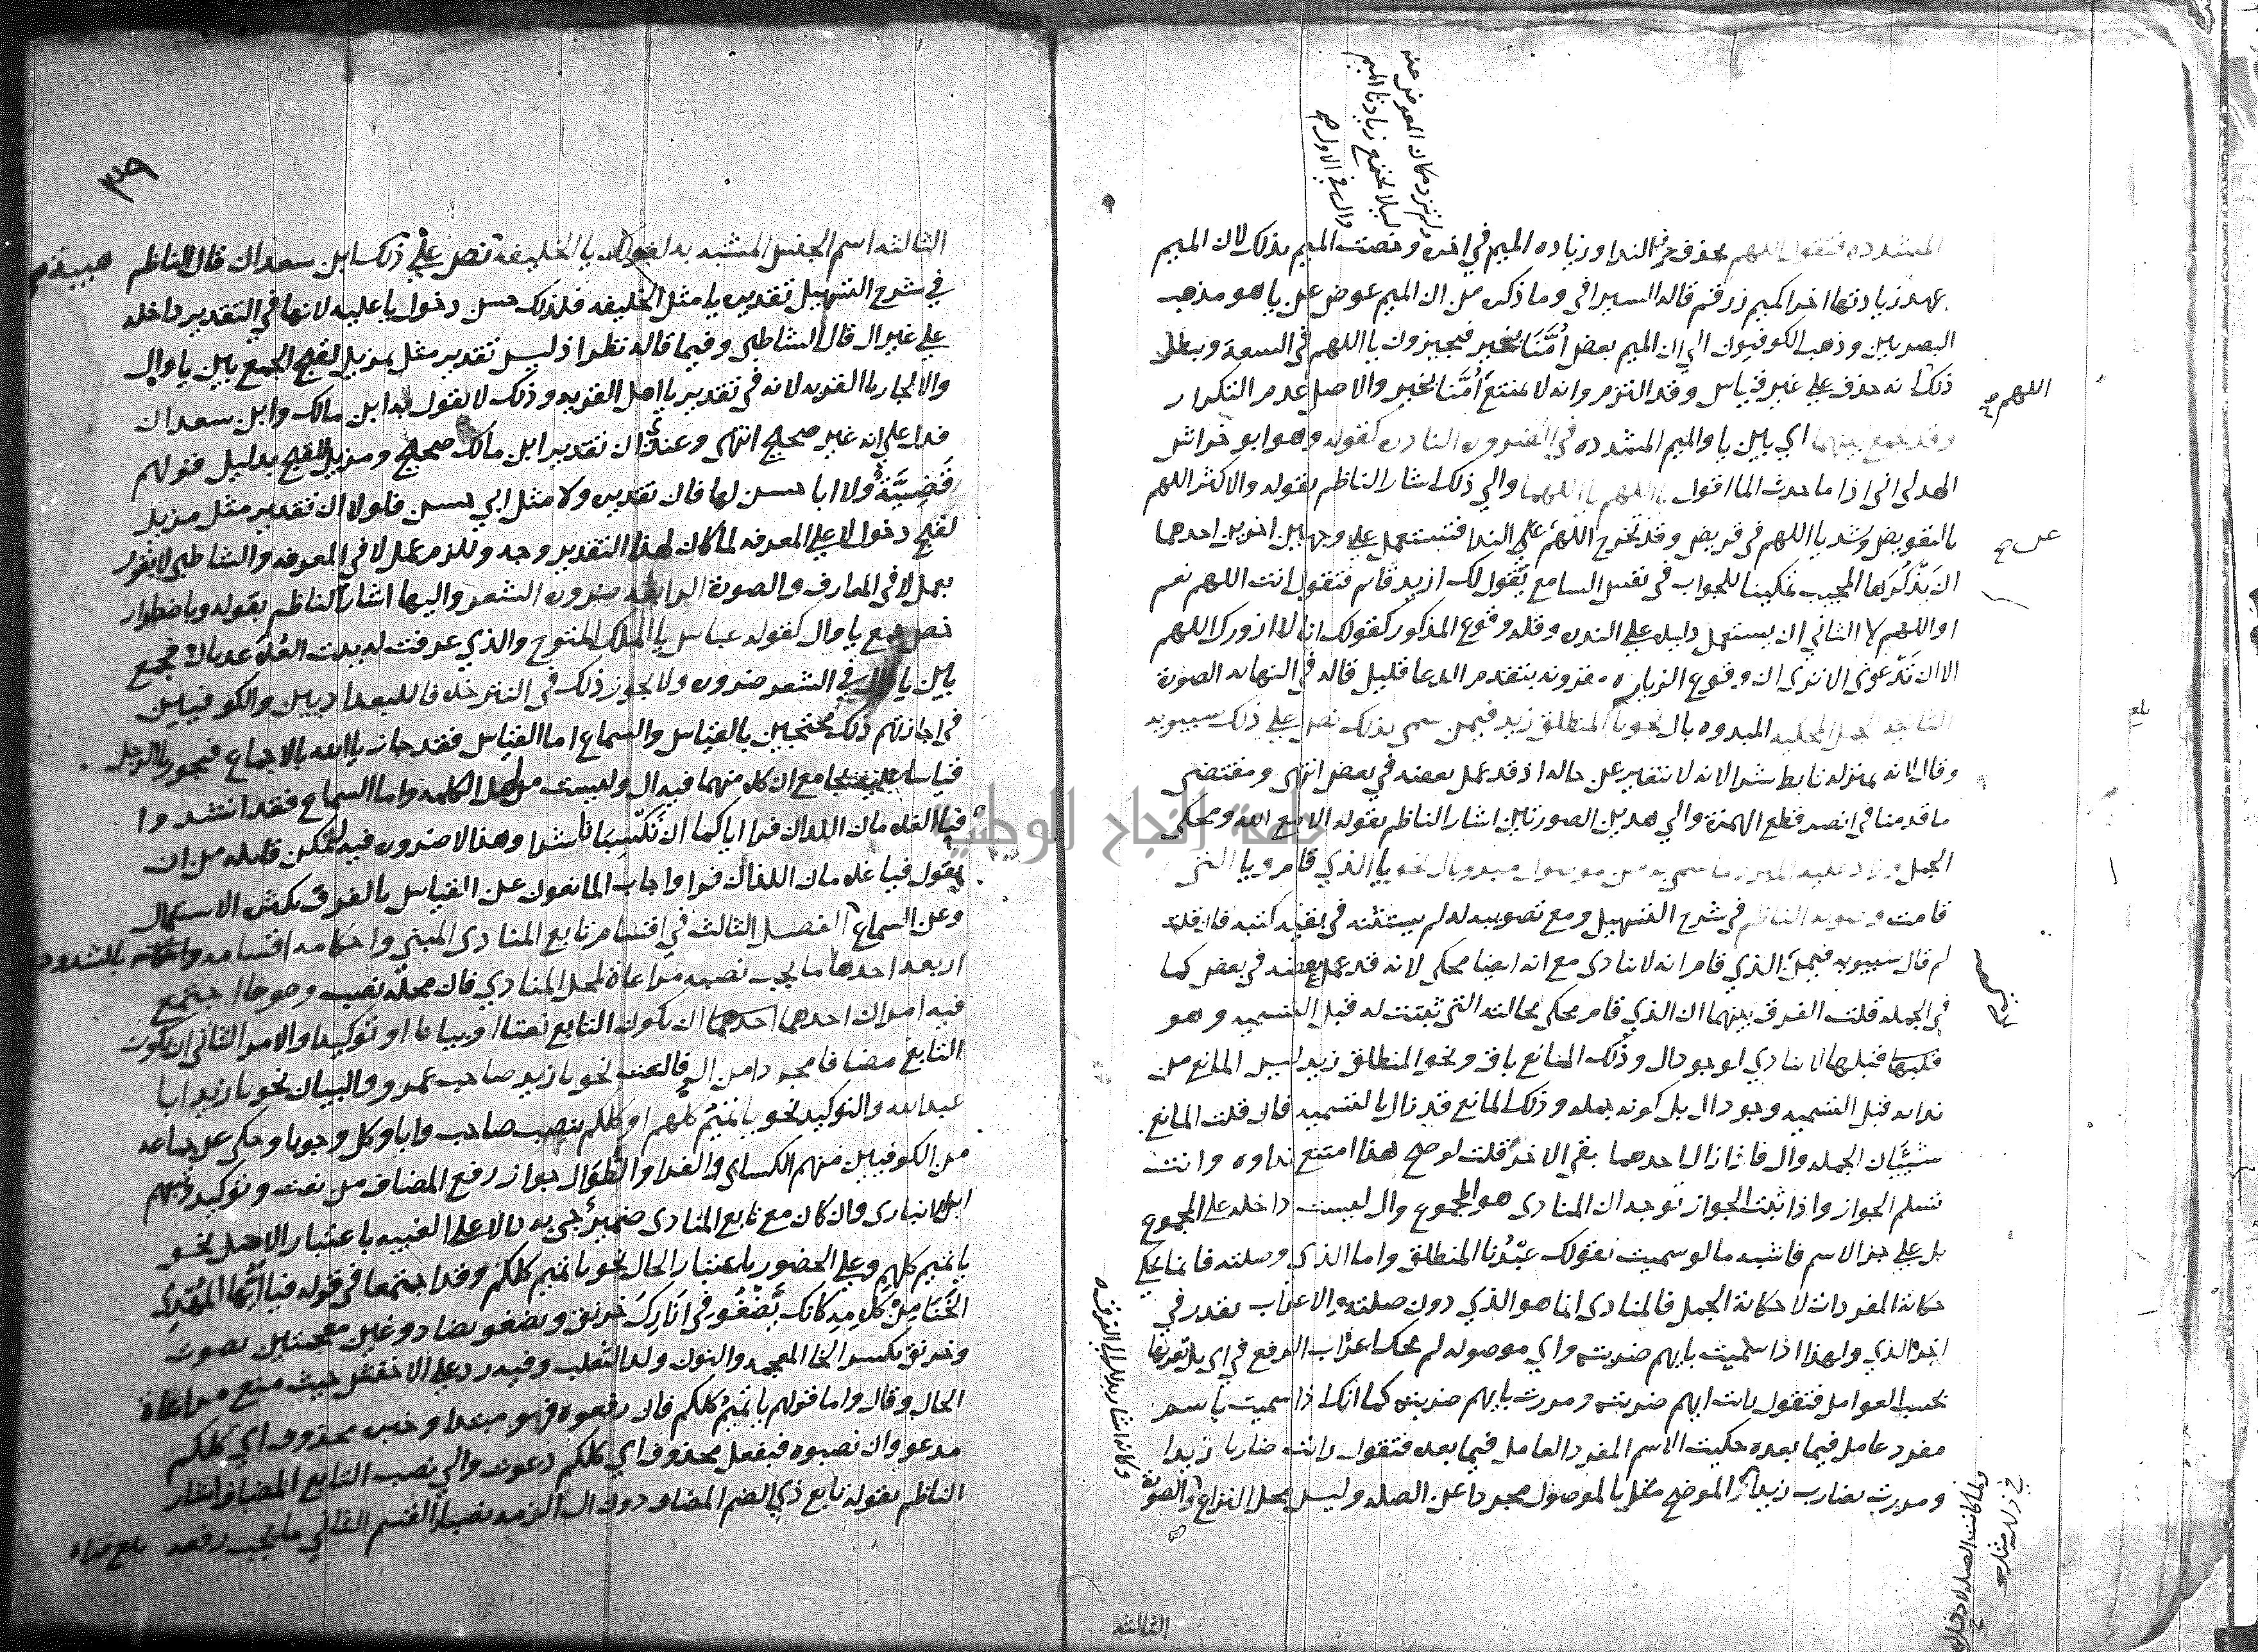 المشدده فتقول اللهم بحذف حرف الندا وزياده الميم في اخره وخصت الميم بذلك لان الميم
عهد زيادتها اخرا كميم زرقم قاله السيرافي وما ذكره من ان الميم عوض عن يا هو مذهب
البصريين وذهب الكوفيون الي ان الميم بعض أُمَّنَا بخير فيجيزون يا اللهم في السعة ويبطل
ذلك انه حذف علي غير قياس وقد التزم وانه لا يمتنع أُمَّنا بخير والاصل عدم التكرار
وقد جمع بينهما اي بين يا والميم المشدده في الضرورة النادره كقوله وهو ابو خراش
الهدلي اني اذا ما حدث الما اقول يا اللهم يا اللهما والي ذلك اشار الناظم بقوله والاكثر اللهم
بالتعويض وشد يا اللهم في قريض وقد تخرج اللهم عن الندا فتستعمل علي وجهين اخرين احدهما
ان يذكرها المجيب تمكينا للجواب في نفس السامع يقول لك ازيد قائم فتقول انت اللهم نعم
او اللهم لا الثاني ان يستعمل دليلا علي الندره وقلة وقوع المذكور كقولك انا لا ازورك اللهم
الا ان تدعوني الا تري ان وقوع الزياره مقرونه بتقدم الدعا قليل قاله في النهايه الصورة
الثانيه الجمل المحكيه المبدوه بال نحو يا المنطلق زيد فيمن سمي بذلك نص علي ذلك سيبويه
وقال لانه بمنزله تابط شرا لانه لا يتغير عن حاله اذ قد عمل بعضه في بعض انتهي ومقتضي
ما قدمنا في انصر قطع الهمزة والي هدين الصورتين اشار الناظم بقوله الا مع الله ومحكي
الجمل وزاد عليه المبرد ما سمي به من موصول مبدو بال نحو يا الذي قام ويا التي
قامت وصوبه الناظم في شرح التسهيل ومع تصويبه له لم يستثنه في بقية كتبه فان قلت
لم قال سيبويه فيمن الذي قام انه لا ينادي مع انه ايضا محكي لانه قد عمل بعضه في بعض كما
في الجمله قلت الفرق بينهما ان الذي قام محكي بحالته التي ثبتت له قبل التسميه وهو
قبلها لا ينادي لوجود ال وذلك المانع باق ونحو المنطلق زيد ليس المانع من
ندائه قبل التسميه وجود ال بل كونه جمله وذلك المانع قد زال بالتسميه فان قلت المانع
شيئان الجمله وال فاذا زال احدهما بقي الاخر قلت لو صح هذا امتنع نداوه وانت
تسلم الجواز واذا ثبت الجواز توجه ان المنادي هو المجموع وال ليست داخله علي المجموع
بل علي جز الاسم فاشبه ما لو سميت بقولك عبدنا المنطلق واما الذي وصلته فانما يحكي
حكاية المفردات لا حكاية الجمل فالمنادي انما هو الذي دون صلته والاعراب يقدر في
اخر الذي ولهذا اذا سميت بايهم ضربته واي موصوله لم يحك اعراب الرفع في اي بل تعربها
بحسب العوامل فتقول رايت ايهم ضربته ومررت بايهم ضربته كما انك اذا سميت باسم
مفرد عامل فيما بعده حكيت الاسم المفرد العامل فيما بعده فتقول رايت ضاربا زيدا
ومررت بضارب زيدا الموضح بالموصول مجردا عن الصله وليس محل النزاع والصورة
الثالثه
الثالثه اسم الجنس المشبه به كقولك يا الخليفة هيبة نص علي ذلك ابن سعدان قال الناظم
في شرح التسهيل تقديره يا مثل الخليفه فلذلك حسن دخول يا عليه لانها في التقدير داخله
علي غير ال قال الشاطبي وفيما قاله نظر اذ ليس تقدير مثل بمزيل لقبح الجمع بين يا وال
والا لجاز يا القريه لانه في تقدير يا اهل القريه وذلك لا يقول به ابن مالك وابن سعدان
فدل علي انه غير صحيح انتهي وعندي ان تقدير ابن مالك صحيح ومزيل للقبح بدليل قولهم
قَضِيَّةٌ ولا ابا حسن لها فان تقديره ولا مثل ابي حسن فلولا ان تقدير مثل مزيل
لقبح دخول لا علي المعرفه لما كان لهذا التقدير وجه وللزم عمل لا في المعرفه والشاطبي لا يقول
بعمل لا في المعارف والصورة الرابعه ضرورة الشعر واليها اشار الناظم بقوله وباضطرار
خص جمع يا وال كقوله عباس يا الملك المتوج والذي عرفت له بيت العلا عدنان فجمع
بين يا وال في الشعر ضروره ولا يجوز ذلك في النثر خلافا للبغداديين والكوفيين
في اجازتهم ذلك محتجين بالقياس والسماع اما القياس فقد جاز يا الله بالاجماع فيجوز يا الرجل
قياسا عليه بجامع ان كلا منهما فيه ال وليست من اصل الكلمه واما السماع فقد انشدوا
فيا الغلامان اللذان فرا اياكما ان تكسبانا شرا وهذا لا ضرورة فيه لتمكن قائله من ان
يقول فيا غلامان اللذان فرا واجاب المانعون عن القياس بالفرق بكثرة الاستعمال
وعن السماع بالشذوذ الفصل الثالث في اقسام تابع المنادي المبني واحكامه اقسامه
اربعه احدها ما يجب نصبه مراعاة لمحل المنادي فان محله نصب وهو ما اجتمع
فيه امران احدهما ان يكون التابع نعتا او بيانا او توكيدا والامر الثاني ان يكون
التابع مضافا مجردا من ال فالنعت نحو يا زيد صاحب عمرو والبيان نحو يا زيد ابا
عبد الله والتوكيد نحو يا تميم كلهم او كلكم بنصب صاحب وابا وكل وجوبا وحكي عن جماعه
من الكوفيين منهم الكساي والفرا والطوال جواز رفع المضاف من نعت وتوكيد وتبعهم
ابن الانباري وان كان مع تابع المنادي ضمير جيء به دالا علي الغيبه باعتبار الاصل نحو
يا تميم كلهم وعلي الحضور باعتبار الحال نحو يا تميم كلكم وقد اجتمعا في قوله فيا ايها المُهْدِي
الخنا من كلامه كانك يضغو في ازارك خرنق ويضغو بضاد وغين معجمتين يصوت
وخرنق بكسر الخا المعجمه والنون ولد الثعلب وفيه رد علي الاخفش حيث منع مراعاة
الحال وقال واما قولهم يا تميم كلكم فان رفعوه فهو مبتدا وخبره محذوف اي كلكم
مدعو وان نصبوه فبفعل محذوف اي كلكم دعوت والي نصب التابع المضاف اشار
الناظم بقوله تابع ذي الضم المضاف دون ال الزمه نصبا القسم الثاني ما يجب رفعه